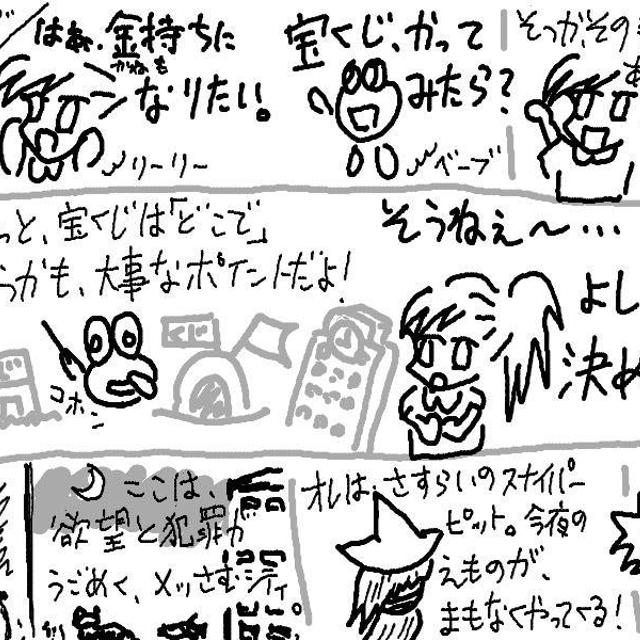 はぁ、金持ちに
かねも
なりたい。
リーリー
宝くじ、かって
みたら?
ベーブ
そっか、その
っと、宝くじは「どこで」
うかも、大事なポイントだよ!
コホン
くじ
そうねぇ〜…
よし
決め
ここは、
欲望と犯罪が
うごめく、メッさむシティ。
オレは、さすらいのスナイパー
ピット。今夜の
えものが、
まもなくやってくる!